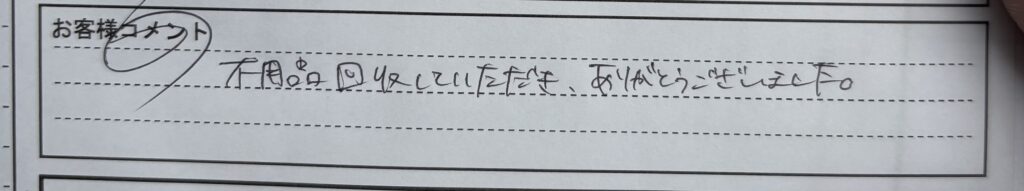 お客様コメント
不用品回収していただき、ありがとうございました。